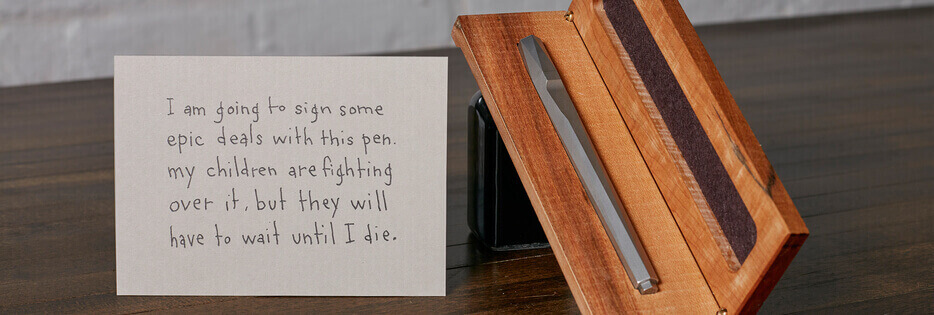 I am going to sign some
epic deals with this pen.
my children are fighting
over it, but they will
have to wait until I die.